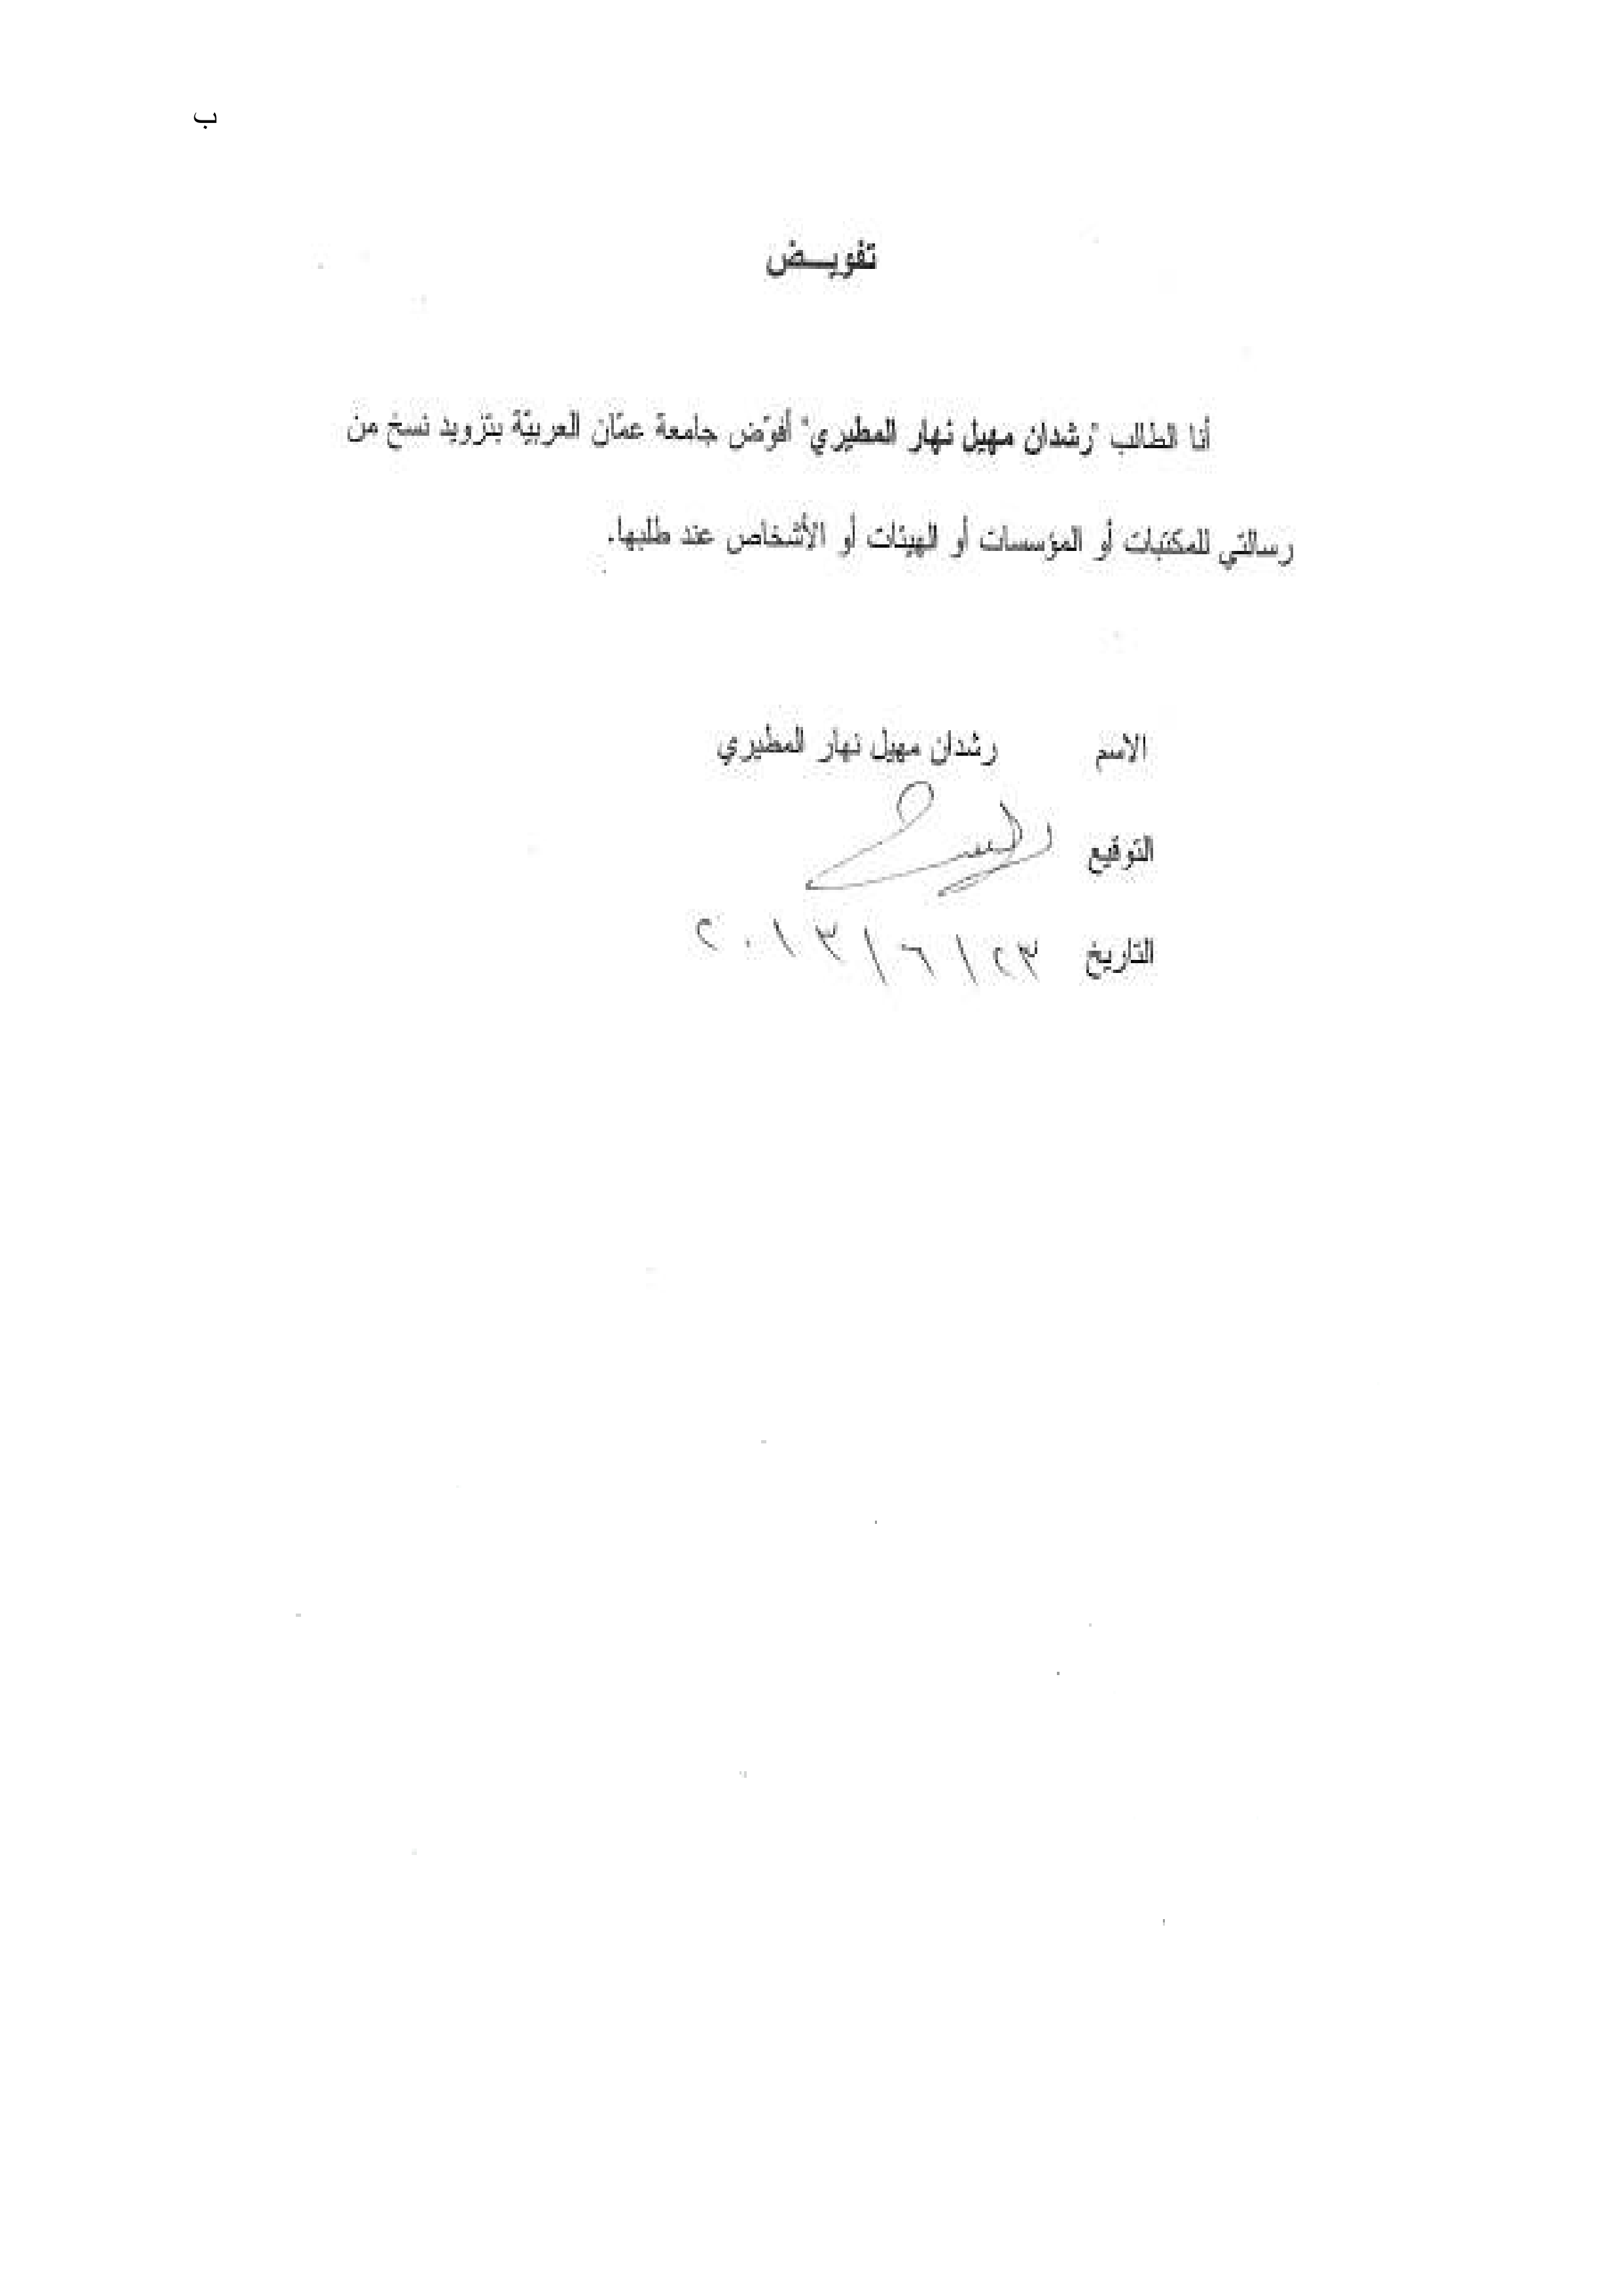 ب
تفويـــض
أنا الطالب "رشدان مهيل نهار المطيري" أفوّض جامعة عمّان العربيّة بتزويد نسخ من
رسالتي للمكتبات أو المؤسسات أو الهيئات أو الأشخاص عند طلبها.
الاسم رشدان مهيل نهار المطيري
التوقيع
التاريخ ٢٣/٦/٢٠١٣